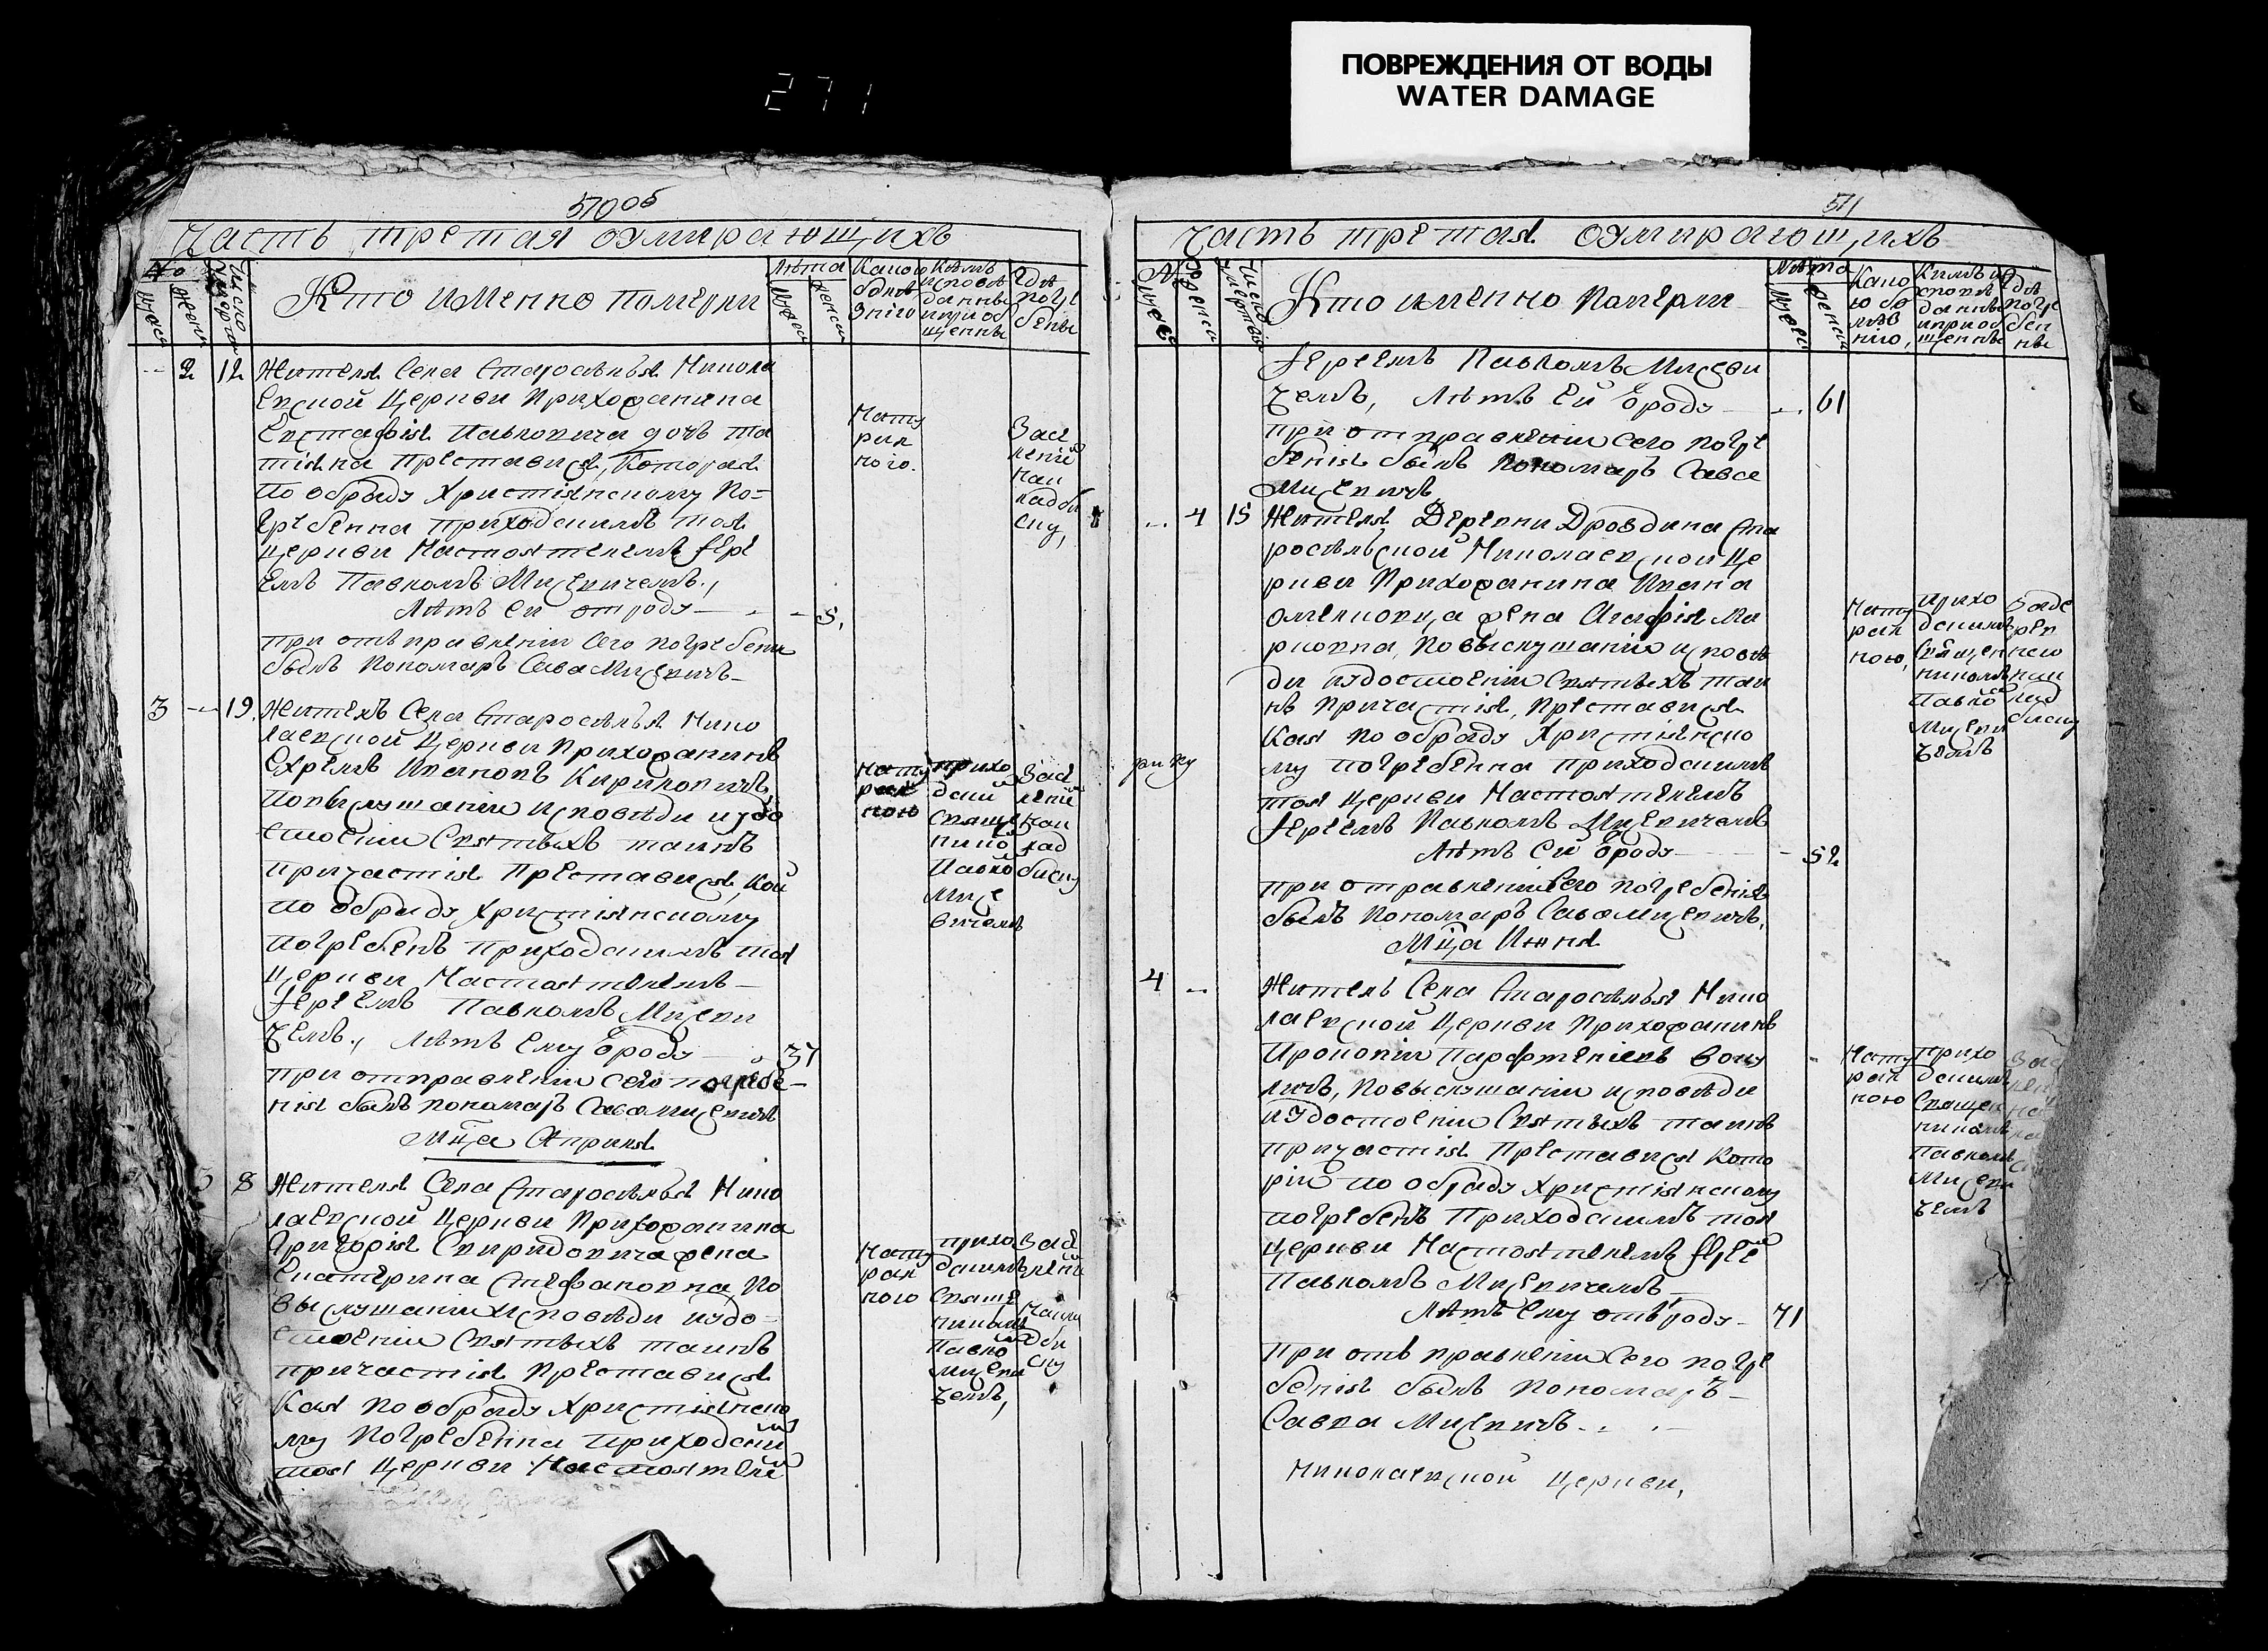 ПОВРЕЖДЕНИЯ ОТ ВОДЫ
WATER DAMAGE
271
570об
Часть третая оумирающихъ
№
Мужеска
Женска
Число умертвія
Кто именно Померли
Лѣта
Мужеска
Женска
Какою
болѣ
знію
Кѣмъ
исповѣ
данны
и приоб
щенны
Гдѣ
погре
бены
-- 2 12 Жителя Села Старосѣлья Нико
лаевской Церкви Прихожанина
Евстафія Павловича дочь Та
тіяна Преставися, Которая
по обряду Християнскому По=
гребенна Приходскимъ тоя
Церкви Настоятелемъ Іере
емъ Павломъ Мицевичемъ.,
Лѣтъ ей отроду - - 5,
При отправленіи сего погребени
былъ Пономаръ Сава Мицевичъ
Нату
рал
ною.
Засе
леніе
на
кладби
ску,
3 -- 19. Житель Села Старосѣлья Нико
лаевской Церкви Прихожанинъ
Ефремъ Ивановъ Кириловичъ,
По выслушаніи исповѣди и удо
стоеніи Святыхъ таинъ
Причастія Преставися, Кой
по обряду Християнскому
Погребенъ Приходскимъ тоя
Церкви Настоятелемъ
Іереемъ Павломъ Мицеви
чемъ., Лѣтъ Ему ѿроду - 37
При отправленіи сего погребе-
нія былъ Пономаръ Сава Мицевичъ
Нату
рал
ною
Прихо
дский
Свяще
нико
Павло
Мице
вичемъ
Засе
леніе
на
клад
биску
Мца Априля
3 8 Жителя Села Старосѣлья Нико
лаевской Церкви Прихожанина
Григорія Свиридовича жена
Екатерина Стефановна, По
выслушаніи Исповѣди и удо-
стоеніи Святыхъ таинъ
Причастія Преставися
Коя по обряду Християнско
му Погребенна Приходским
тоя Церкви Настоятелем
Нату
рал
ною
Прихо
дскимъ
Свяще
никомъ
Павло
Мицеви
чемъ,
Засе
лені
511
Часть третая оумирающихъ
№
Мужеска
Женска
Число умертвія
Кто именно Померли
Лѣта
Мужеск
Женска
Како
ю бо
лѣз
нію,
Кѣмъ и
сповѣ
данны
и приоб
щенны
Гдѣ
погре
бен
ны
Іереемъ Павломъ Мицеви
чемъ, Лѣтъ ей ѿроду - 61
При отправленіи сего погре
бенія былъ Пономаръ Савва
Мицевичъ
-- 4 15 Жителя Деревни Дроздина Ста
росѣльской Николаевской Це
ркви Прихожанина Ивана
Омельковца жена Агафія Ма
рковна, По выслушаніи исповѣ
ди и удостоеніи Святыхъ таи
нъ Причастія, Преставися
Коя по обряду Християнско
му Погребенна Приходскимъ
тоя Церкви Настоятелемъ
Іереемъ Павломъ Мицевичемъ
Лѣтъ ей ѿроду - 52
При отправленіи сего погребенія
былъ Пономаръ Сава Мицевичъ,
Нату
рал
ною,
Прихо
дскимъ
Священ
никомъ
Павло
Мицеви
чемъ
Заде
рев
нею
на
клад
биску
Мца Июня
4 -- Житель Села Старосѣлья Нико
лаевской Церкви Прихожанинъ
По выслушаніи исповѣди
и удостоеніи Святыхъ таинъ
Причастія Преставися Кото
рій по обряду Християнскому
погребенъ Приходскимъ тоя
Церкви Настоятелемъ Іерее
Павломъ Мицевичемъ
Лѣтъ Ему отъроду - 71
При отъправленіи сего погре
бенія былъ Пономаръ
Савва Мицевичъ
Нату
рал
ною
Прихо
дскимъ
Священ
никомъ
Павломъ
Мицеви
чемъ
Николаевской Церкви,